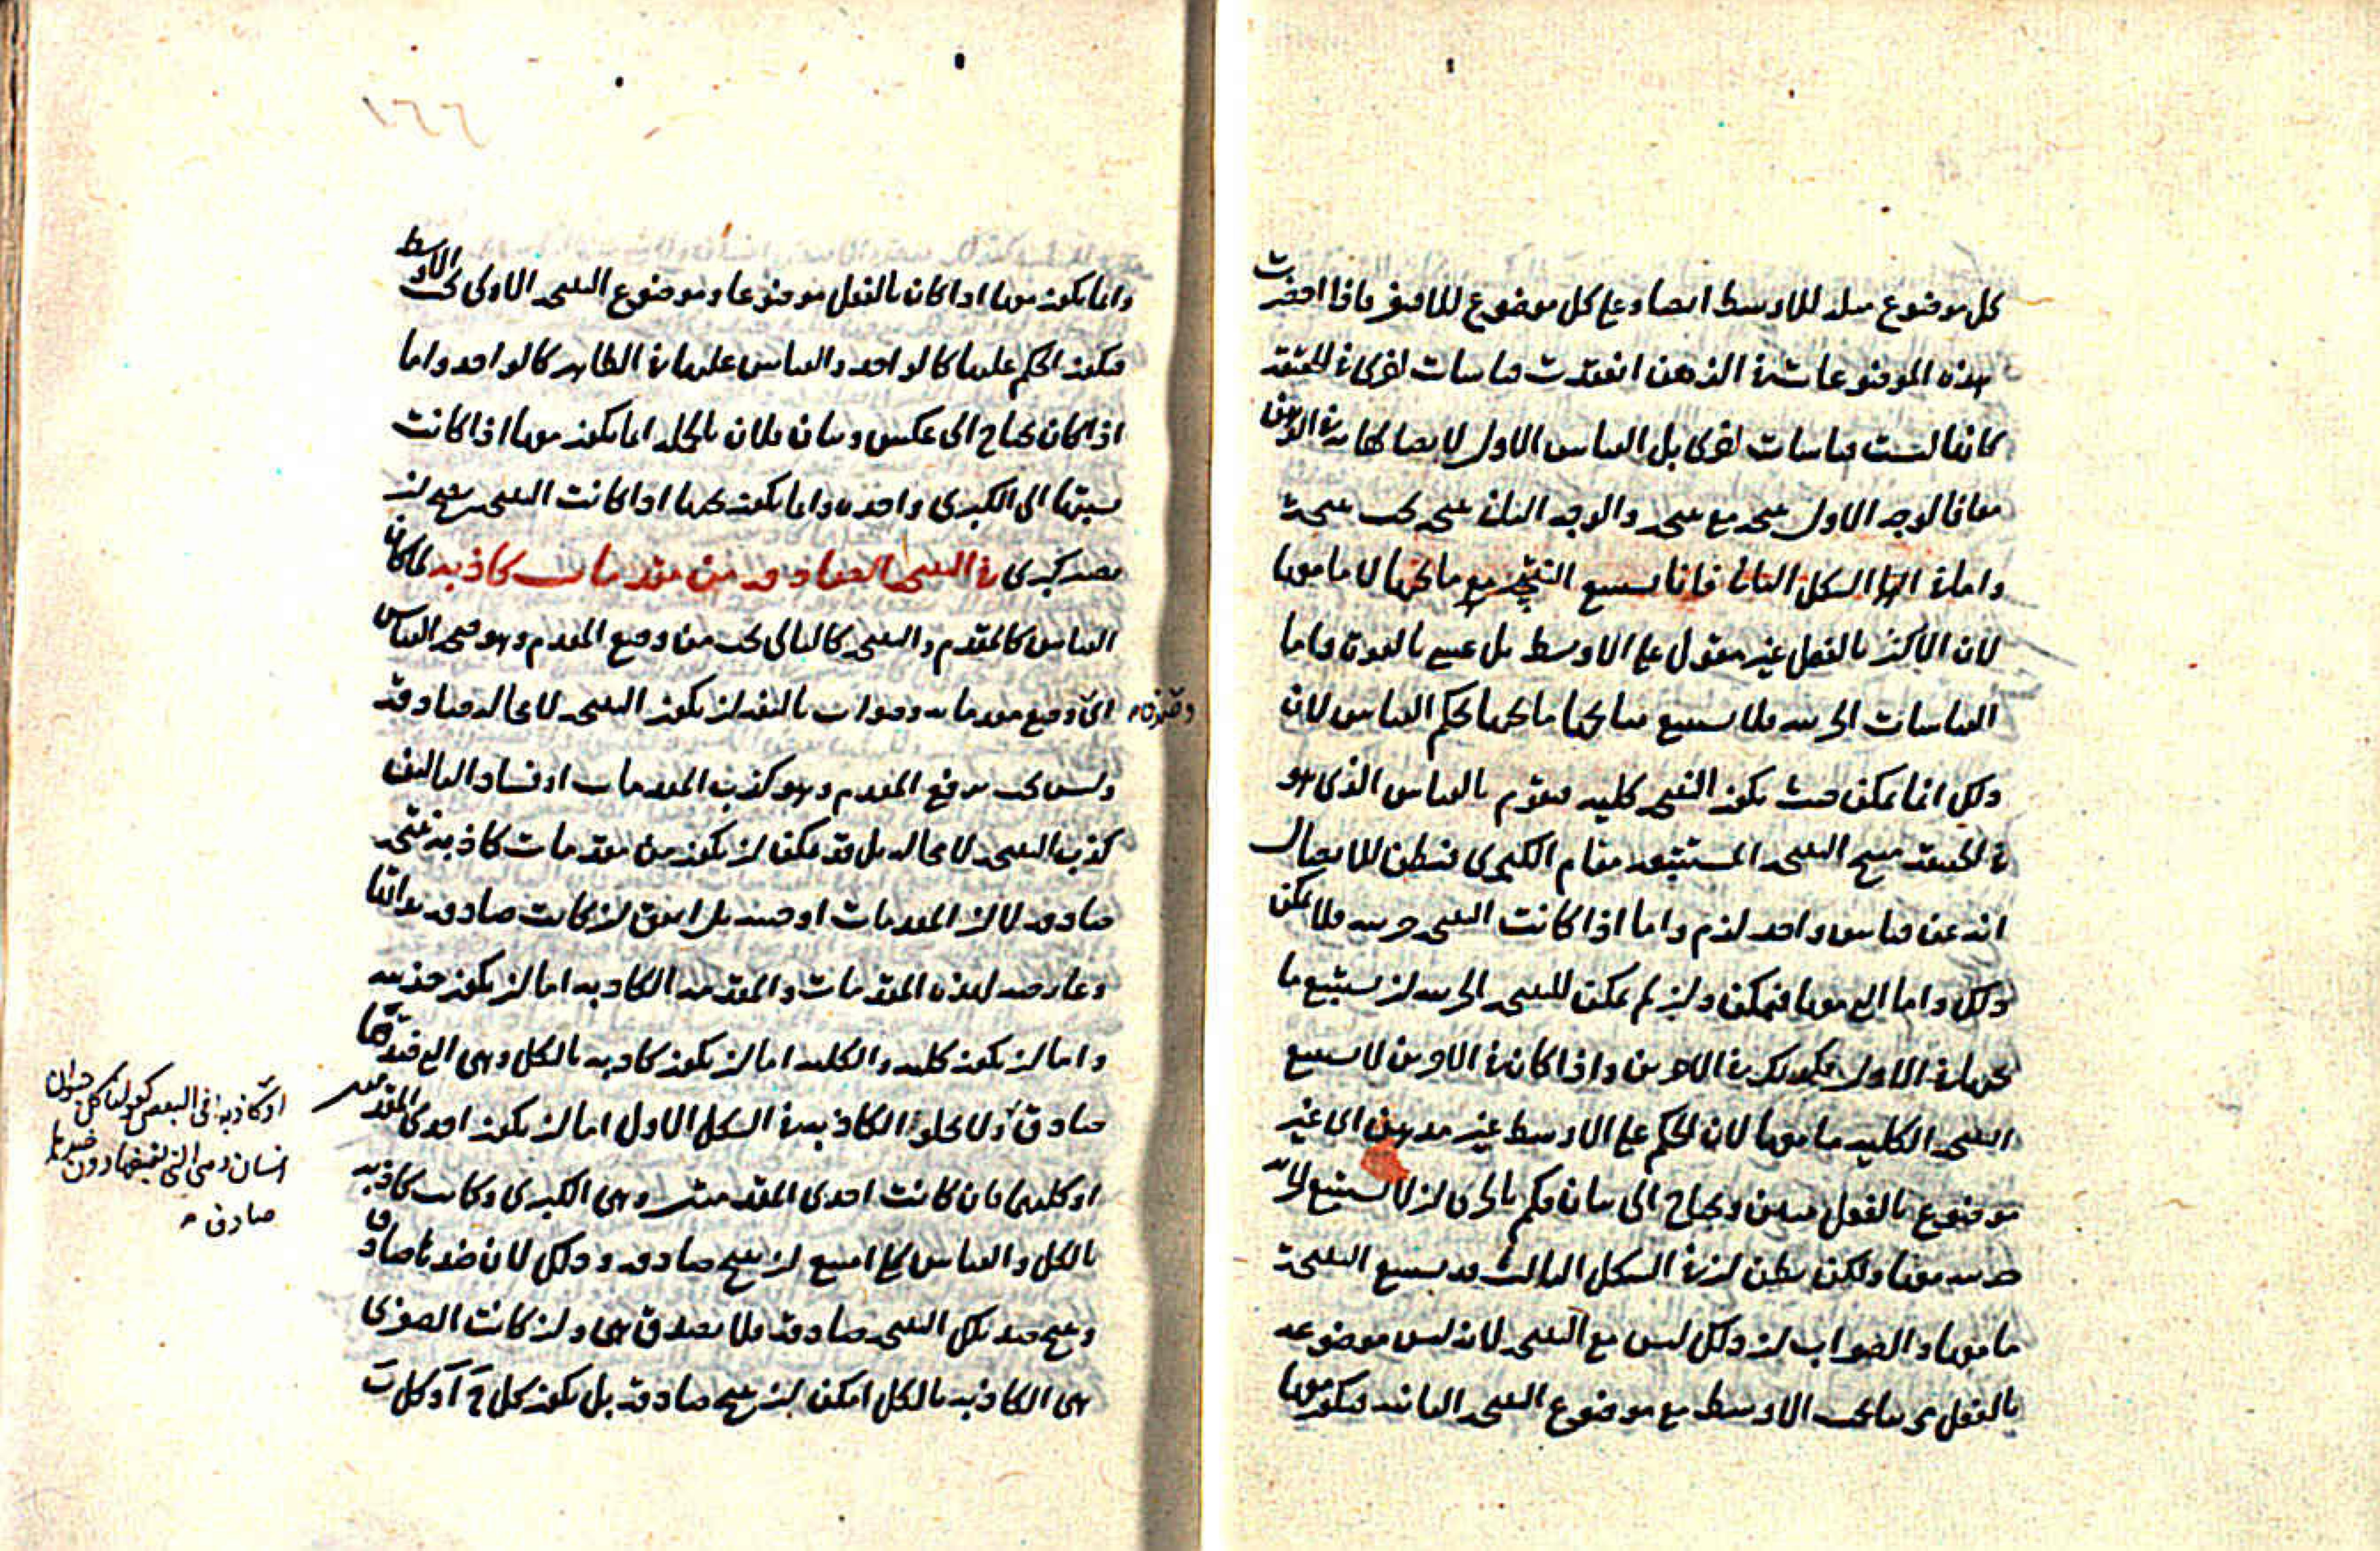 كل موضوع مثله للاوسط ايضا وعلى كل موضوع للاصغر فاذا احضرت
هذه الموضوعات في الذهن انعقدت قياسات اخرى في الحقيقة
كانها ليست قياسات اخرى بل القياس الاول لاتصالها به في الذهن
معا فالوجه الاول نتيجة مع نتيجة والوجه الثاني نتيجة تحت نتيجة
واما في الشكل الثاني فانما تستتبع النتيجة مع ما تحتها لا ما معها
لان الاكبر بالفعل غير مقول على الاوسط بل عسى بالقوة واما
القياسات الجزئية فلا تستتبع نتايجها ما تحتها بحكم القياس لان
ذلك انما يمكن حيث تكون النتيجة كلية فتقوم بالقياس الذي هو
في الحقيقة منتج النتيجة المستتبعة مقام الكبرى فتظن للاتصال
انه عن قياس واحد لزم واما اذا كانت النتيجة جزئية فلا يمكن
ذلك واما التي معها فيمكن وان لم يمكن للنتيجة الجزئية ان تستتبع ما
تحتها في الاول فكذلك في الاخرين واذا كان في الاخرين لا تستتبع
النتيجة الكلية ما معها لان الحكم على الاوسط غير
موضوع بالفعل مبين ويحتاج الى بيان فكم بالحرى ان لا تستتبع الجزئية
جزئية معها ولكن يظن ان في الشكل الثالث قد تستتبع النتيجة
ما معها والصواب ان ذلك ليس مع النتيجة لانه ليس موضوعه
بالفعل تحت الاوسط مع موضوع النتيجة الثانية فيكون معها
١٦٦
وانما يكون معها اذا كان بالفعل موضوعا وموضوع النتيجة الاولى تحت الاوسط
فيكون الحكم عليهما كالواحد والقياس عليهما في الظاهر كالواحد واما
اذا كان يحتاج الى عكس وبيان فلان بالجملة انما يكون معها اذا كانت
نسبتها الى الكبرى واحدة وانما يكون تحتها اذا كانت النتيجة تصلح لان
تصير كبرى في النتيجة الصادقة من مقدمات كاذبة لما كان
القياس كالمقدم والنتيجة كالتالي يجب من وضع المقدم وهو صحة القياس
اي وضع مقدماته وصواب تاليفه ان يكون النتيجة لا محالة صادقة
وليس يجب من رفع المقدم وهو كذب المقدمات او فساد التاليف
كذب النتيجة لا محالة بل قد يمكن ان يكون من مقدمات كاذبة نتيجة
صادقة لا لان المقدمات اوجبته بل اتفق ان كانت صادقة بذاتها
وعارضة لهذه المقدمات والمقدمة الكاذبة اما ان يكون جزئية
واما ان يكون كلية والكلية اما ان يكون كاذبة بالكل وهي التي ضدها
صادق ولا يخلو الكاذبة في الشكل الاول اما ان يكون احدى المقدمتين
او كليهما فان كانت احدى المقدمتين وهي الكبرى وكانت كاذبة
بالكل والقياس كلي امتنع ان ينتج صادقة وذلك لان ضدها صادق
وينتج ضد تلك النتيجة صادقة فلا يصدق هي وان كانت الصغرى
هي الكاذبة بالكل امكن ان ينتج صادقة بل يكون كل ج آ وكل ب
او كاذبة في البعض كقولنا كل حيوان
انسان وهي التي نقيضها دون ضدها
صادق